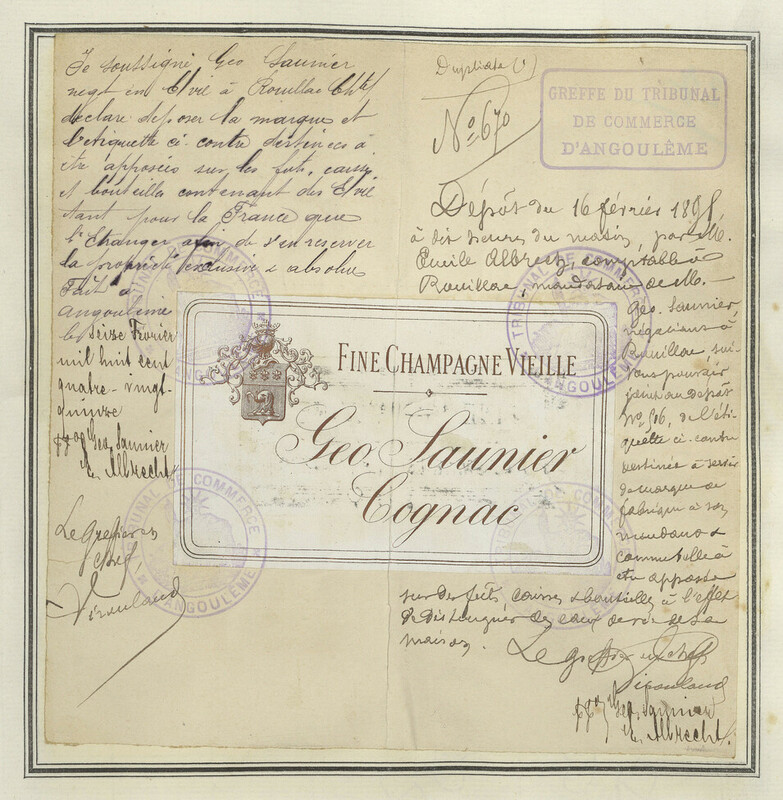 Je soussigné Geo Saunier
negt en EVie à Rouillac Chte
déclare déposer la marque et
l'étiquette ci-contre destinées à
être apposées sur les futs, caisses
et bouteilles contenant des EVie
tant pour la France que
l'Etranger afin de s'en réserver
la propriété exclusive & absolue
Fait à
Angoulême
le Seize Février
mil huit cent
quatre-vingt-
quinze
Geo Saunier
E. Albrecht
Le Greffier en
chef
Duplicata (1)
No. 670
GREFFE DU TRIBUNAL
DE COMMERCE
D'ANGOULÊME
Dépôt du 16 février 1895,
à dix heures du matin, par M.
Emile Albrecht, comptable à
Rouillac, mandataire de M.
Geo. Saunier,
négociant à
Rouillac, sui-
vant pouvoir
joint au dépôt
No. 506, de l'éti-
quette ci-contre
destinée à servir
de marque de
fabrique à son
mandant &
comme telle à
être apposée
sur des futs, caisses & bouteilles à l'effet
de distinguer des eaux de vie de sa
maison.
Le greffier en chef
Geo. Saunier
E. Albrecht
FINE CHAMPAGNE VIEILLE
Geo. Saunier
Cognac
TRIBUNAL DE COMMERCE
D'ANGOULÊME
TRIBUNAL DE COMMERCE
D'ANGOULÊME
TRIBUNAL DE COMMERCE
D'ANGOULÊME
TRIBUNAL DE COMMERCE
D'ANGOULÊME